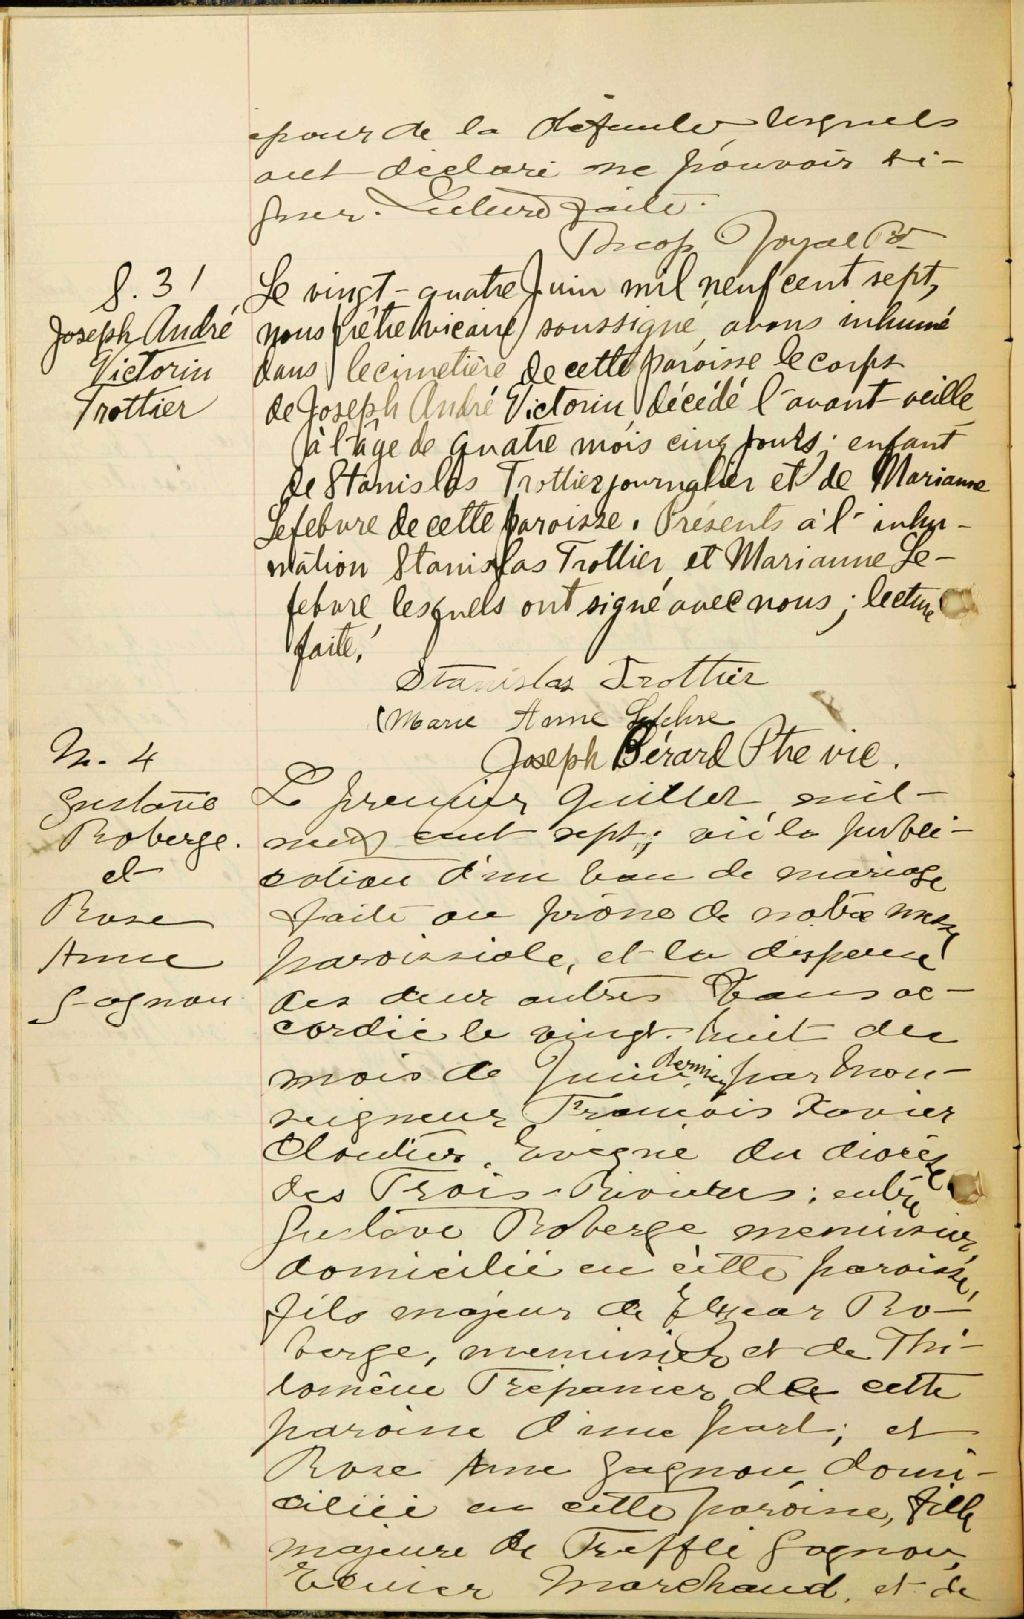 pour de la défunte lesquels
ont déclaré ne pouvoir si-
gner. Lecture faite.
Joyal Ptr
S. 31
Joseph André
Victorin
Trottier
Le vingt-quatre Juin mil neuf cent sept,
nous prêtre vicaire soussigné, avons inhumé
dans le cimetière de cette paroisse le corps
de Joseph André Victorin décédé l'avant veille
à l'âge de quatre mois cinq jours; enfant
de Stanislas Trottier journalier et de Marianne
Lefebvre de cette paroisse. Présents à l'inhu-
mation Stanislas Trottier et Marianne Le-
febvre lesquels ont signé avec nous; lecture
faite.
Stanislas Trottier
Marie Anne Lefebvre
Joseph Bérard Ptre vic.
M. 4
Gustave
Roberge.
et
Rose
Anne
Gagnon
Le premier Juillet mil-
neuf cent sept; vu la publi-
cation d'un ban de mariage
faite au prône de notre messe
paroissiale, et la dispense
des deux autres bans ac-
cordée le vingt-huit du
mois de Juin dernier, par Mon-
seigneur François Xavier
Cloutier, Evêque du diocèse
des Trois-Rivières; entre
Gustave Roberge menuisier,
domicilié en cette paroisse,
fils majeur de Elzear Ro-
berge, menuisier et de Phi-
lomène Trepanier, de cette
paroisse d'une part; et
Rose Anne Gagnon, domi-
ciliée en cette paroisse, fille
majeure de Trefflé Gagnon,
Marchand, et de